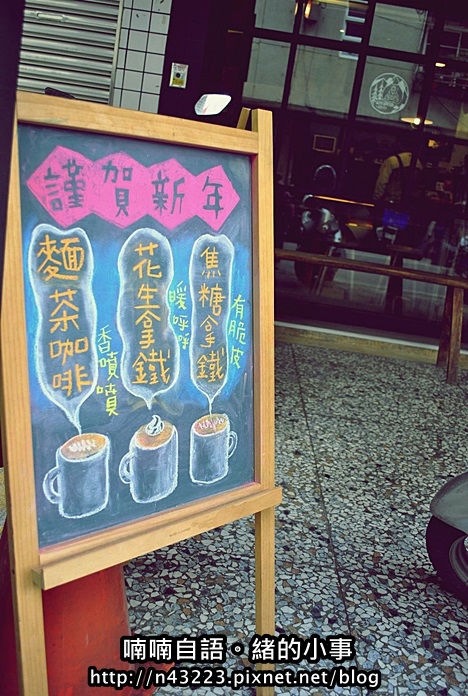 謹賀新年
麵茶咖啡
香噴噴
花生拿鐵
暖呼呼
焦糖拿鐵
有脆皮
喃喃自語。緒的小事
http://n43223.pixnet.net/blog